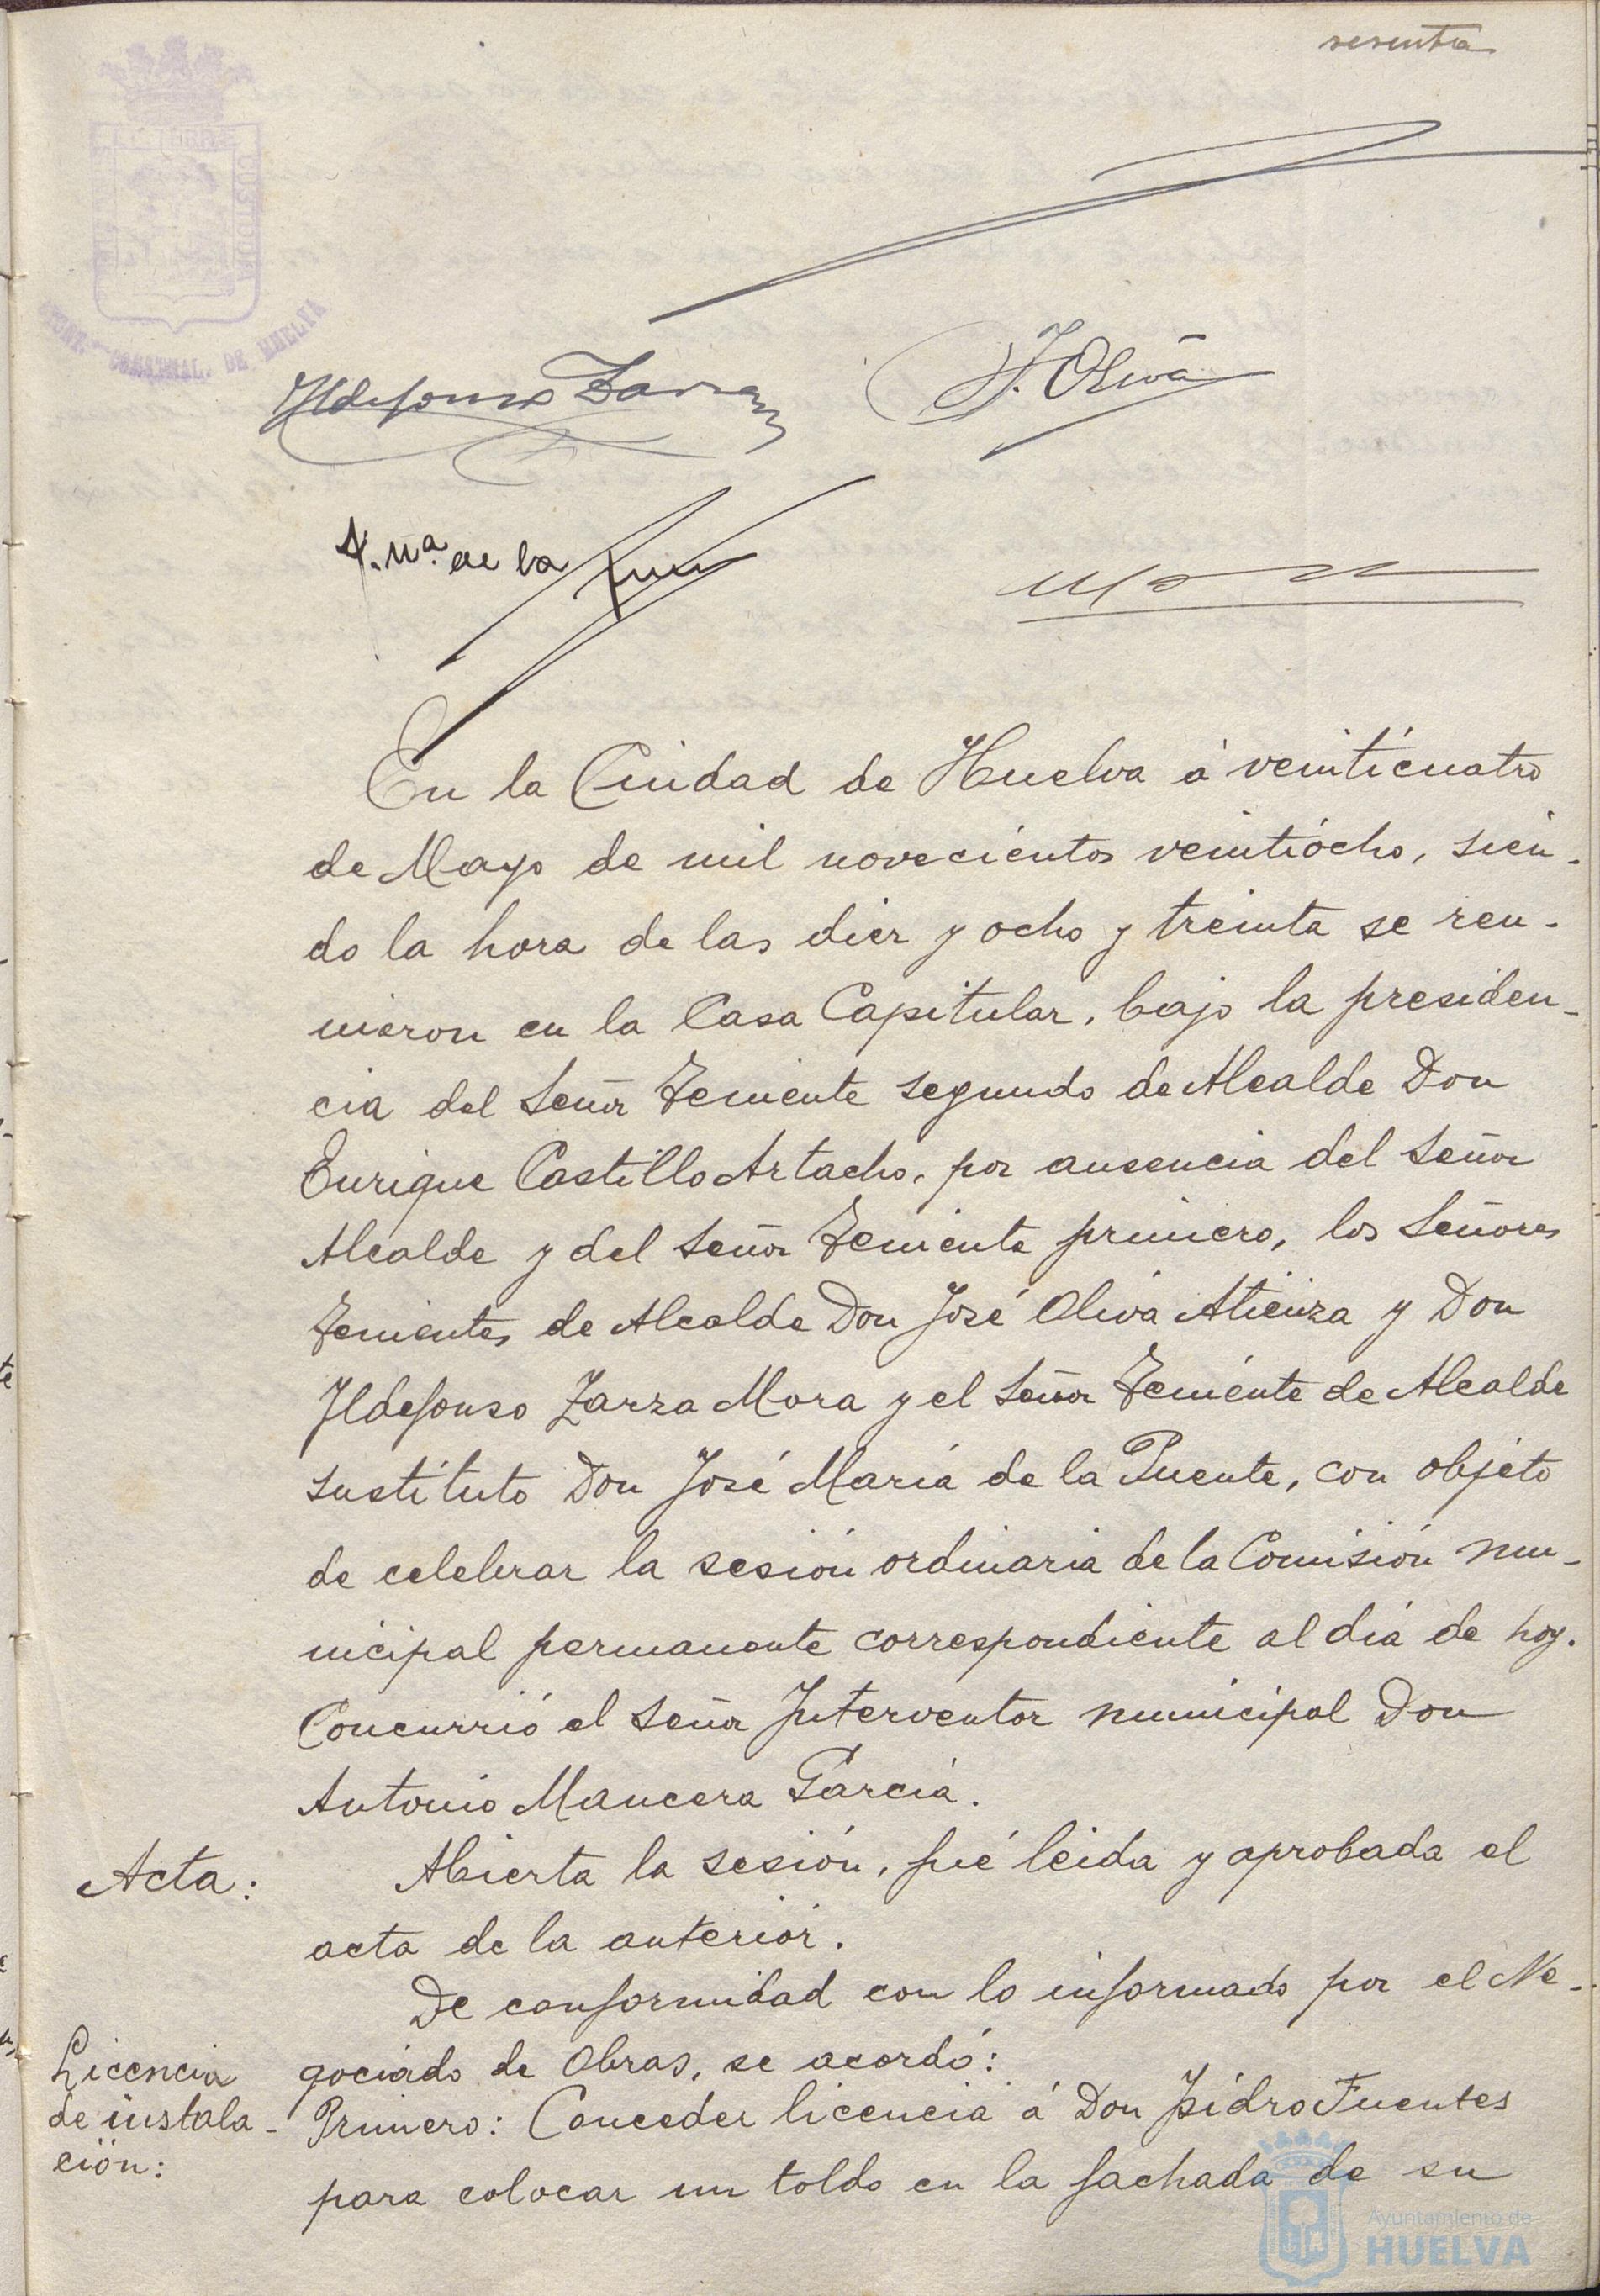 sesenta
Ildefonso Zarza
J. Oliva
J. Mª. de la Puente
En la Ciudad de Huelva á veinticuatro
de Mayo de mil novecientos veintiocho, sien-
do la hora de las diez y ocho y treinta se reu-
nieron en la Casa Capitular, bajo la presiden-
cia del Señor Teniente segundo de Alcalde Don
Enrique Castillo Artacho, por ausencia del Señor
Alcalde y del Señor Teniente primero, los Señores
Tenientes de Alcalde Don José Oliva Atienza y Don
Ildefonso Zarza Mora y el Señor Teniente de Alcalde
sustituto Don José María de la Puente, con objeto
de celebrar la sesión ordinaria de la Comisión mu-
nicipal permanente correspondiente al día de hoy.
Concurrió el Señor Interventor municipal Don
Antonio Mancera García.
Acta:
Abierta la sesión, fué leida y aprobada el
acta de la anterior.
De conformidad con lo informado por el Ne-
gociado de Obras, se acordó:
Licencia
de instala-
ción:
Primero: Conceder licencia á Don Isidro Fuentes
para colocar un toldo en la fachada de su
Ayuntamiento de
HUELVA